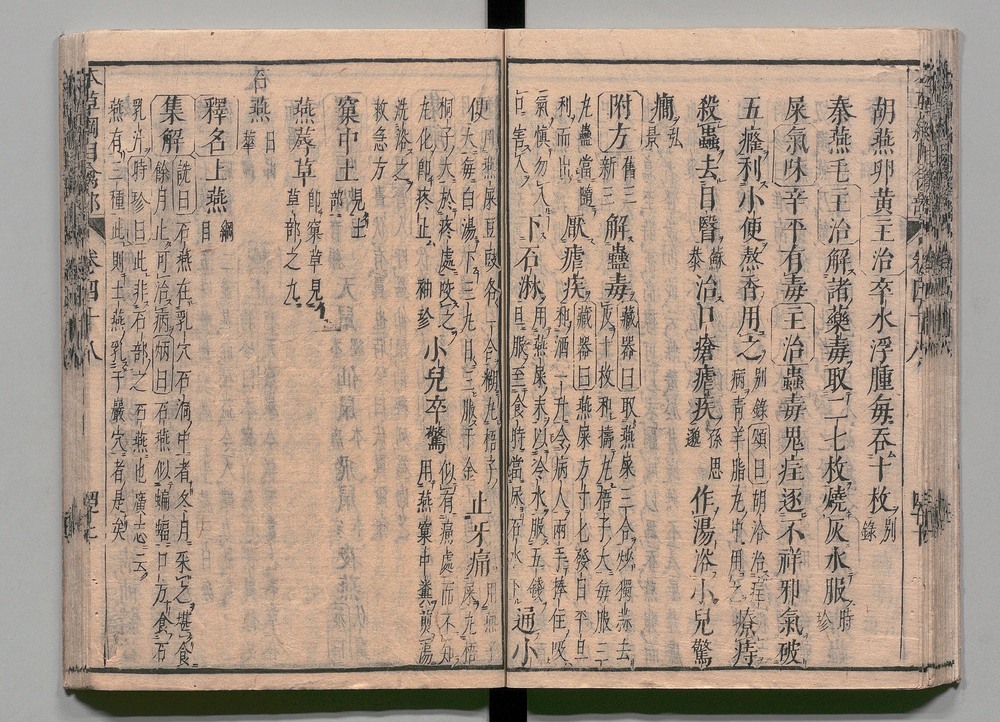 胡燕卵黃主治卒水浮腫每吞十枚別錄
秦燕毛主治解諸藥毒取二七枚燒灰水服時珍
屎氣味辛平有毒主治蠱毒鬼疰逐不祥邪氣破
五癃利小便熬香用之別錄頌曰胡洽治疰病青羊脂丸中用之療痔
殺蟲去目翳蘇恭治口瘡瘧疾孫思邈作湯浴小兒驚
癇弘景
附方舊三新三解蠱毒藏器曰取燕屎三合炒獨蒜去
丸蠱當隨利而出厭瘧疾藏器曰燕屎方寸匕發日平旦
和酒一升令病人兩手捧住吸
氣慎勿入口害人下石淋用燕屎末以冷水服五錢旦服至食時當尿石水下通小
便用燕屎豆豉各一合糊丸梧子大每白湯下三丸日三服千金止牙痛用燕子屎丸梧
桐子大於疼處咬之丸化即疼止袖珍小兒卒驚似有痛處而不知用燕窠中糞煎湯
洗浴之救急方
窠中土見土部
燕蓐草即窠草見草部之九
石燕日華
釋名土燕綱目
集解詵曰石燕在乳穴石洞中者冬月采之堪食餘月止可治病炳曰石燕似蝙蝠口方食石
乳汁時珍曰此非石部之石燕也廣志云
燕有二種此則土燕乳于巖穴者是矣
本草綱目禽部 卷四十八